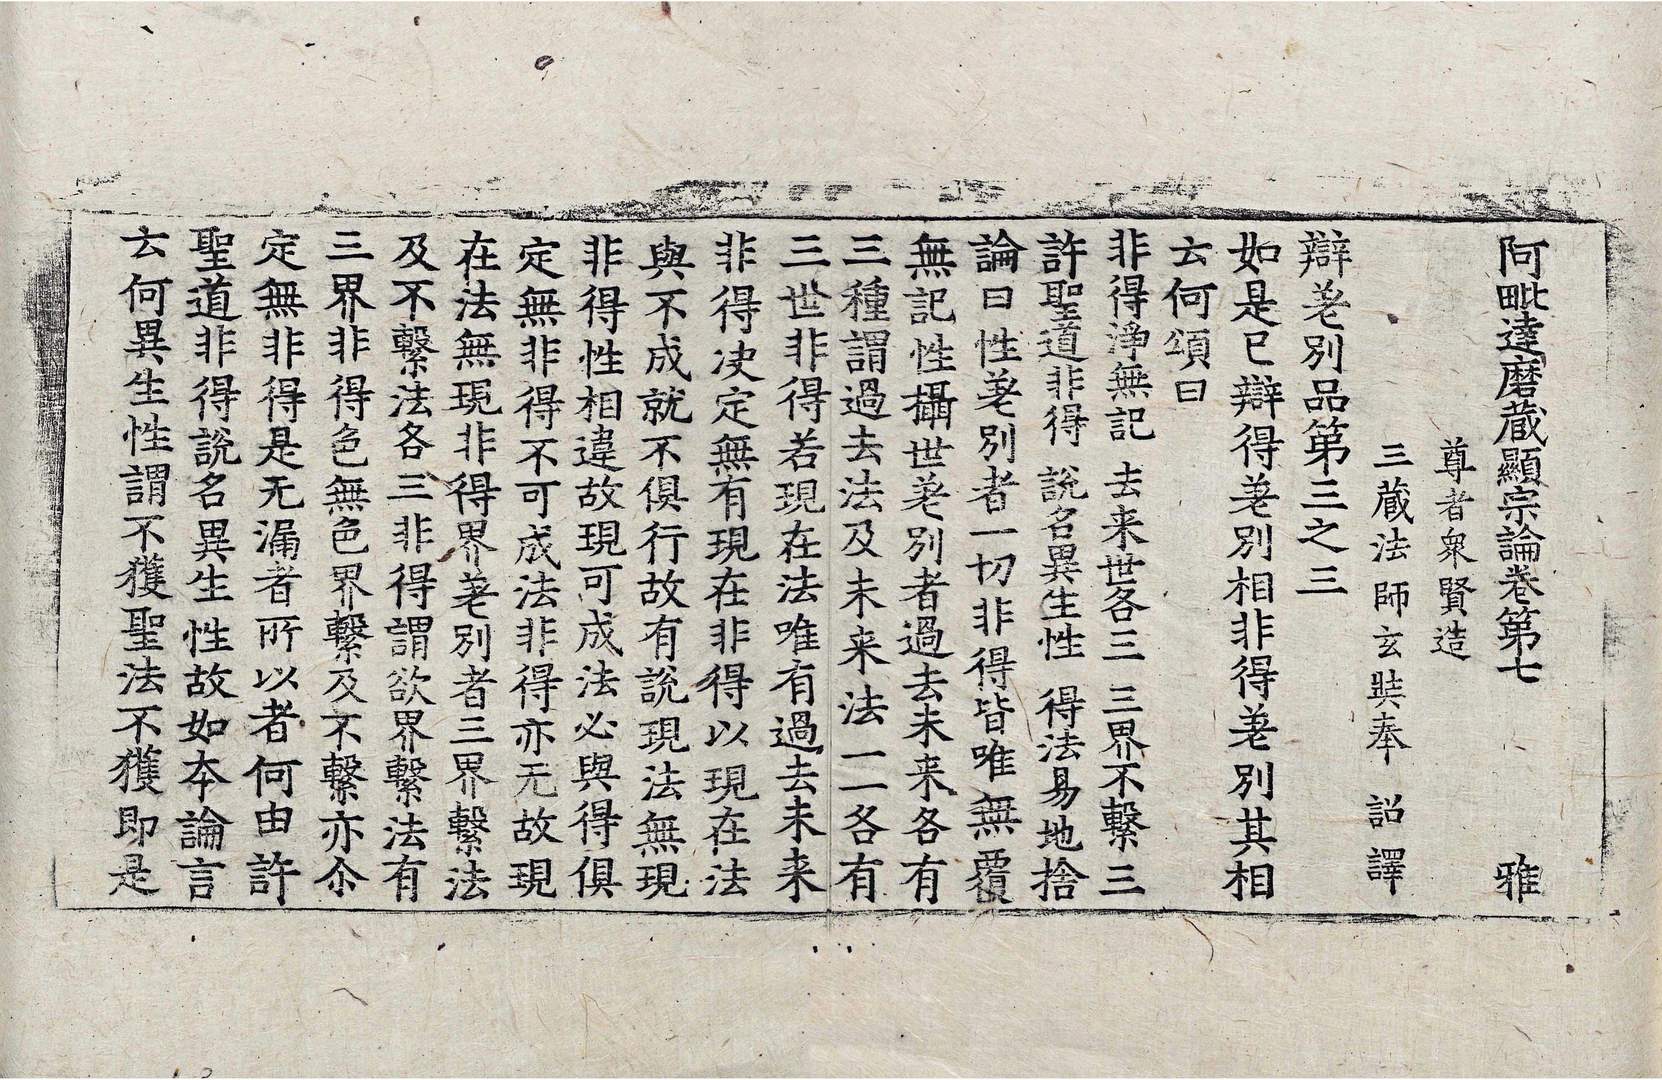 阿毗達磨蔵顯宗論卷第七　雅
尊者衆賢造
三蔵法師玄奘奉　詔譯
辯差別品第三之三
如是已辯得差別相非得差別其相
云何頌曰
非得淨無記　去来世各三　三界不繫三
許聖道非得　說名異生性　得法易地捨
論曰性差別者一切非得皆唯無覆
無記性攝世差別者過去未来各有
三種謂過去法及未来法一一各有
三世非得若現在法唯有過去未来
非得决定無有現在非得以現在法
與不成就不俱行故有說現法無現
非得性相違故現可成法必與得俱
定無非得不可成法非得亦无故現
在法無現非得界差別者三界繫法
及不繫法各三非得謂欲界繫法有
三界非得色無色界繫及不繫亦尒
定無非得是无漏者所以者何由許
聖道非得說名異生性故如夲論言
云何異生性謂不獲聖法不獲即是